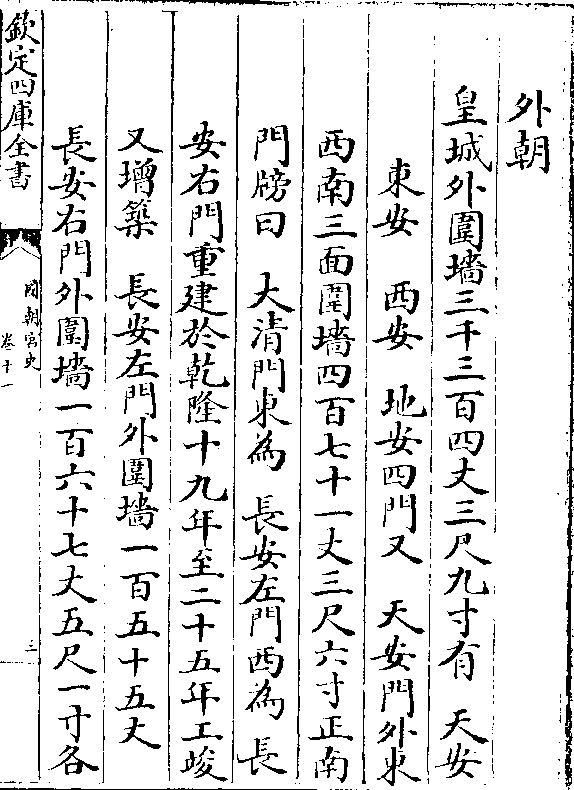 外朝
皇城外圍墻三千三百四丈三尺九寸有　天安
東安　西安　地安四門又　天安門外東
西南三面圍墻四百七十一丈三尺六寸正南
門牓曰　大清門東為　長安左門西為　長
安右門重建於乾隆十九年至二十五年工竣
又增築　長安左門外圍墻一百五十五丈
長安右門外圍墻一百六十七丈五尺一寸各
欽定四庫全書
國朝宮史
卷十一
三